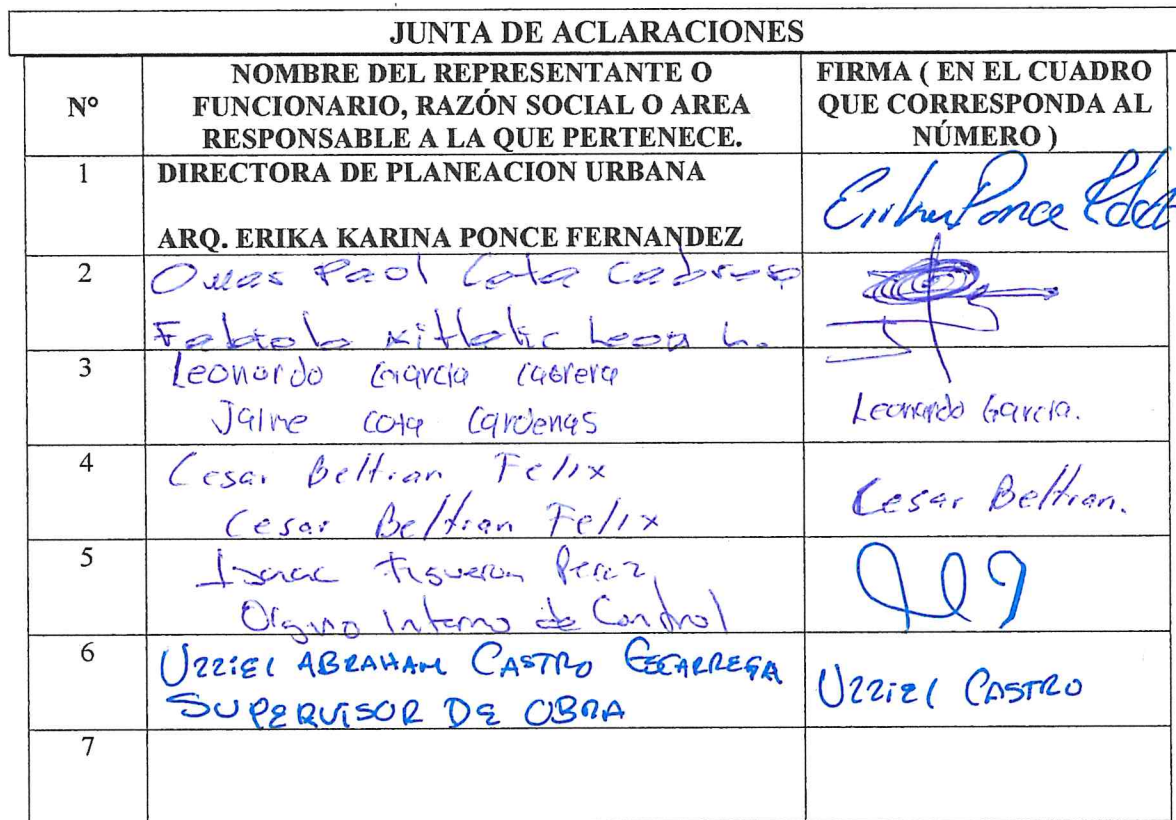 JUNTA DE ACLARACIONES
N°
NOMBRE DEL REPRESENTANTE O
FUNCIONARIO, RAZÓN SOCIAL O AREA
RESPONSABLE A LA QUE PERTENECE.
FIRMA ( EN EL CUADRO
QUE CORRESPONDA AL
NÚMERO )
1
DIRECTORA DE PLANEACION URBANA
ARQ. ERIKA KARINA PONCE FERNANDEZ
Ponce
2
Paol Cota
Leon L.
3
Leonardo Garcia Cabrera
Jaime Cota Cardenas
Leonardo Garcia.
4
Cesar Beltran Felix
Cesar Beltran Felix
Cesar Beltran.
5
Isaac Figueroa Perez
Organo Interno de Control
6
UZZIEL ABRAHAM CASTRO
SUPERVISOR DE OBRA
UZZIEL CASTRO
7